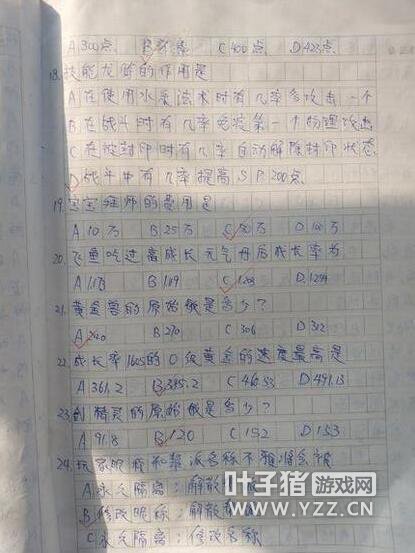 A 300点 B 384点 C 400点 D 423点
18. 技能龙龄的作用是
A 在使用水系法术时有几率多攻击一个
B 在战斗时有几率免疫第一个物理攻击
C 在被封印时有几率自动解除封印状态
D 战斗中有几率提高SP200点
19. 宝宝拜师的费用是
A 10万 B 25万 C 50万 D 100万
20. 飞鱼吃过高成长元气丹后成长率为
B 1.19 C 1.203 D 1.254
21. 黄金兽的原始 是多少?
A 240 B 270 C 306 D 312
22. 成长率1.605的0级黄金的速度最高是
A 361.2 B 385.2 C 460.53 D 491.13
23. 剑精灵的原始 是多少?
A 91.8 B 120 C 152 D 153
24. 玩家昵称和帮派名称不雅将会被
A 永久隔离;解散
B 修改昵称;解散
C 永久隔离;修改名称
叶子猪游戏网
WWW.YZZ.CN